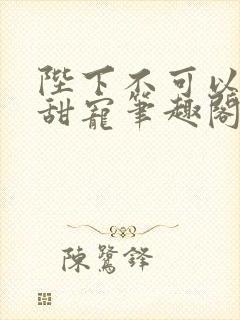 陛下不可以
甜寵筆趣閣
陳鷺鋒